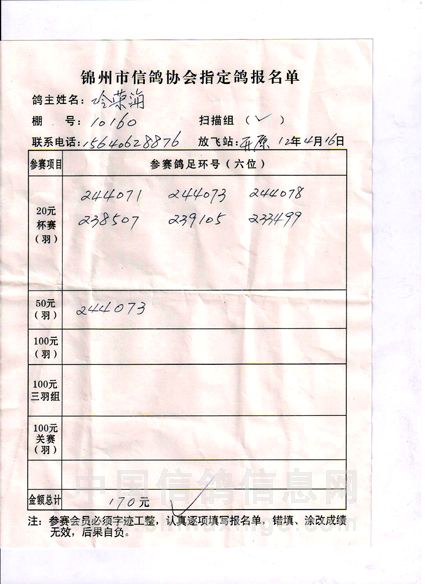 锦州市信鸽协会指定鸽报名单
鸽主姓名：冷荣海
棚 号：10160 扫描组（✓）
联系电话：15640628876 放飞站：开原 12年4月16日
参赛项目 参赛鸽足环号（六位）
20元杯赛（羽） 244071 244073 244078
238507 239105 233499
50元（羽） 244073
100元（羽）
100元三羽组
100元关赛（羽）
金额总计 170元
注：参赛会员必须字迹工整，认真逐项填写报名单，错填、涂改成绩
无效，后果自负。
中国信鸽信息网